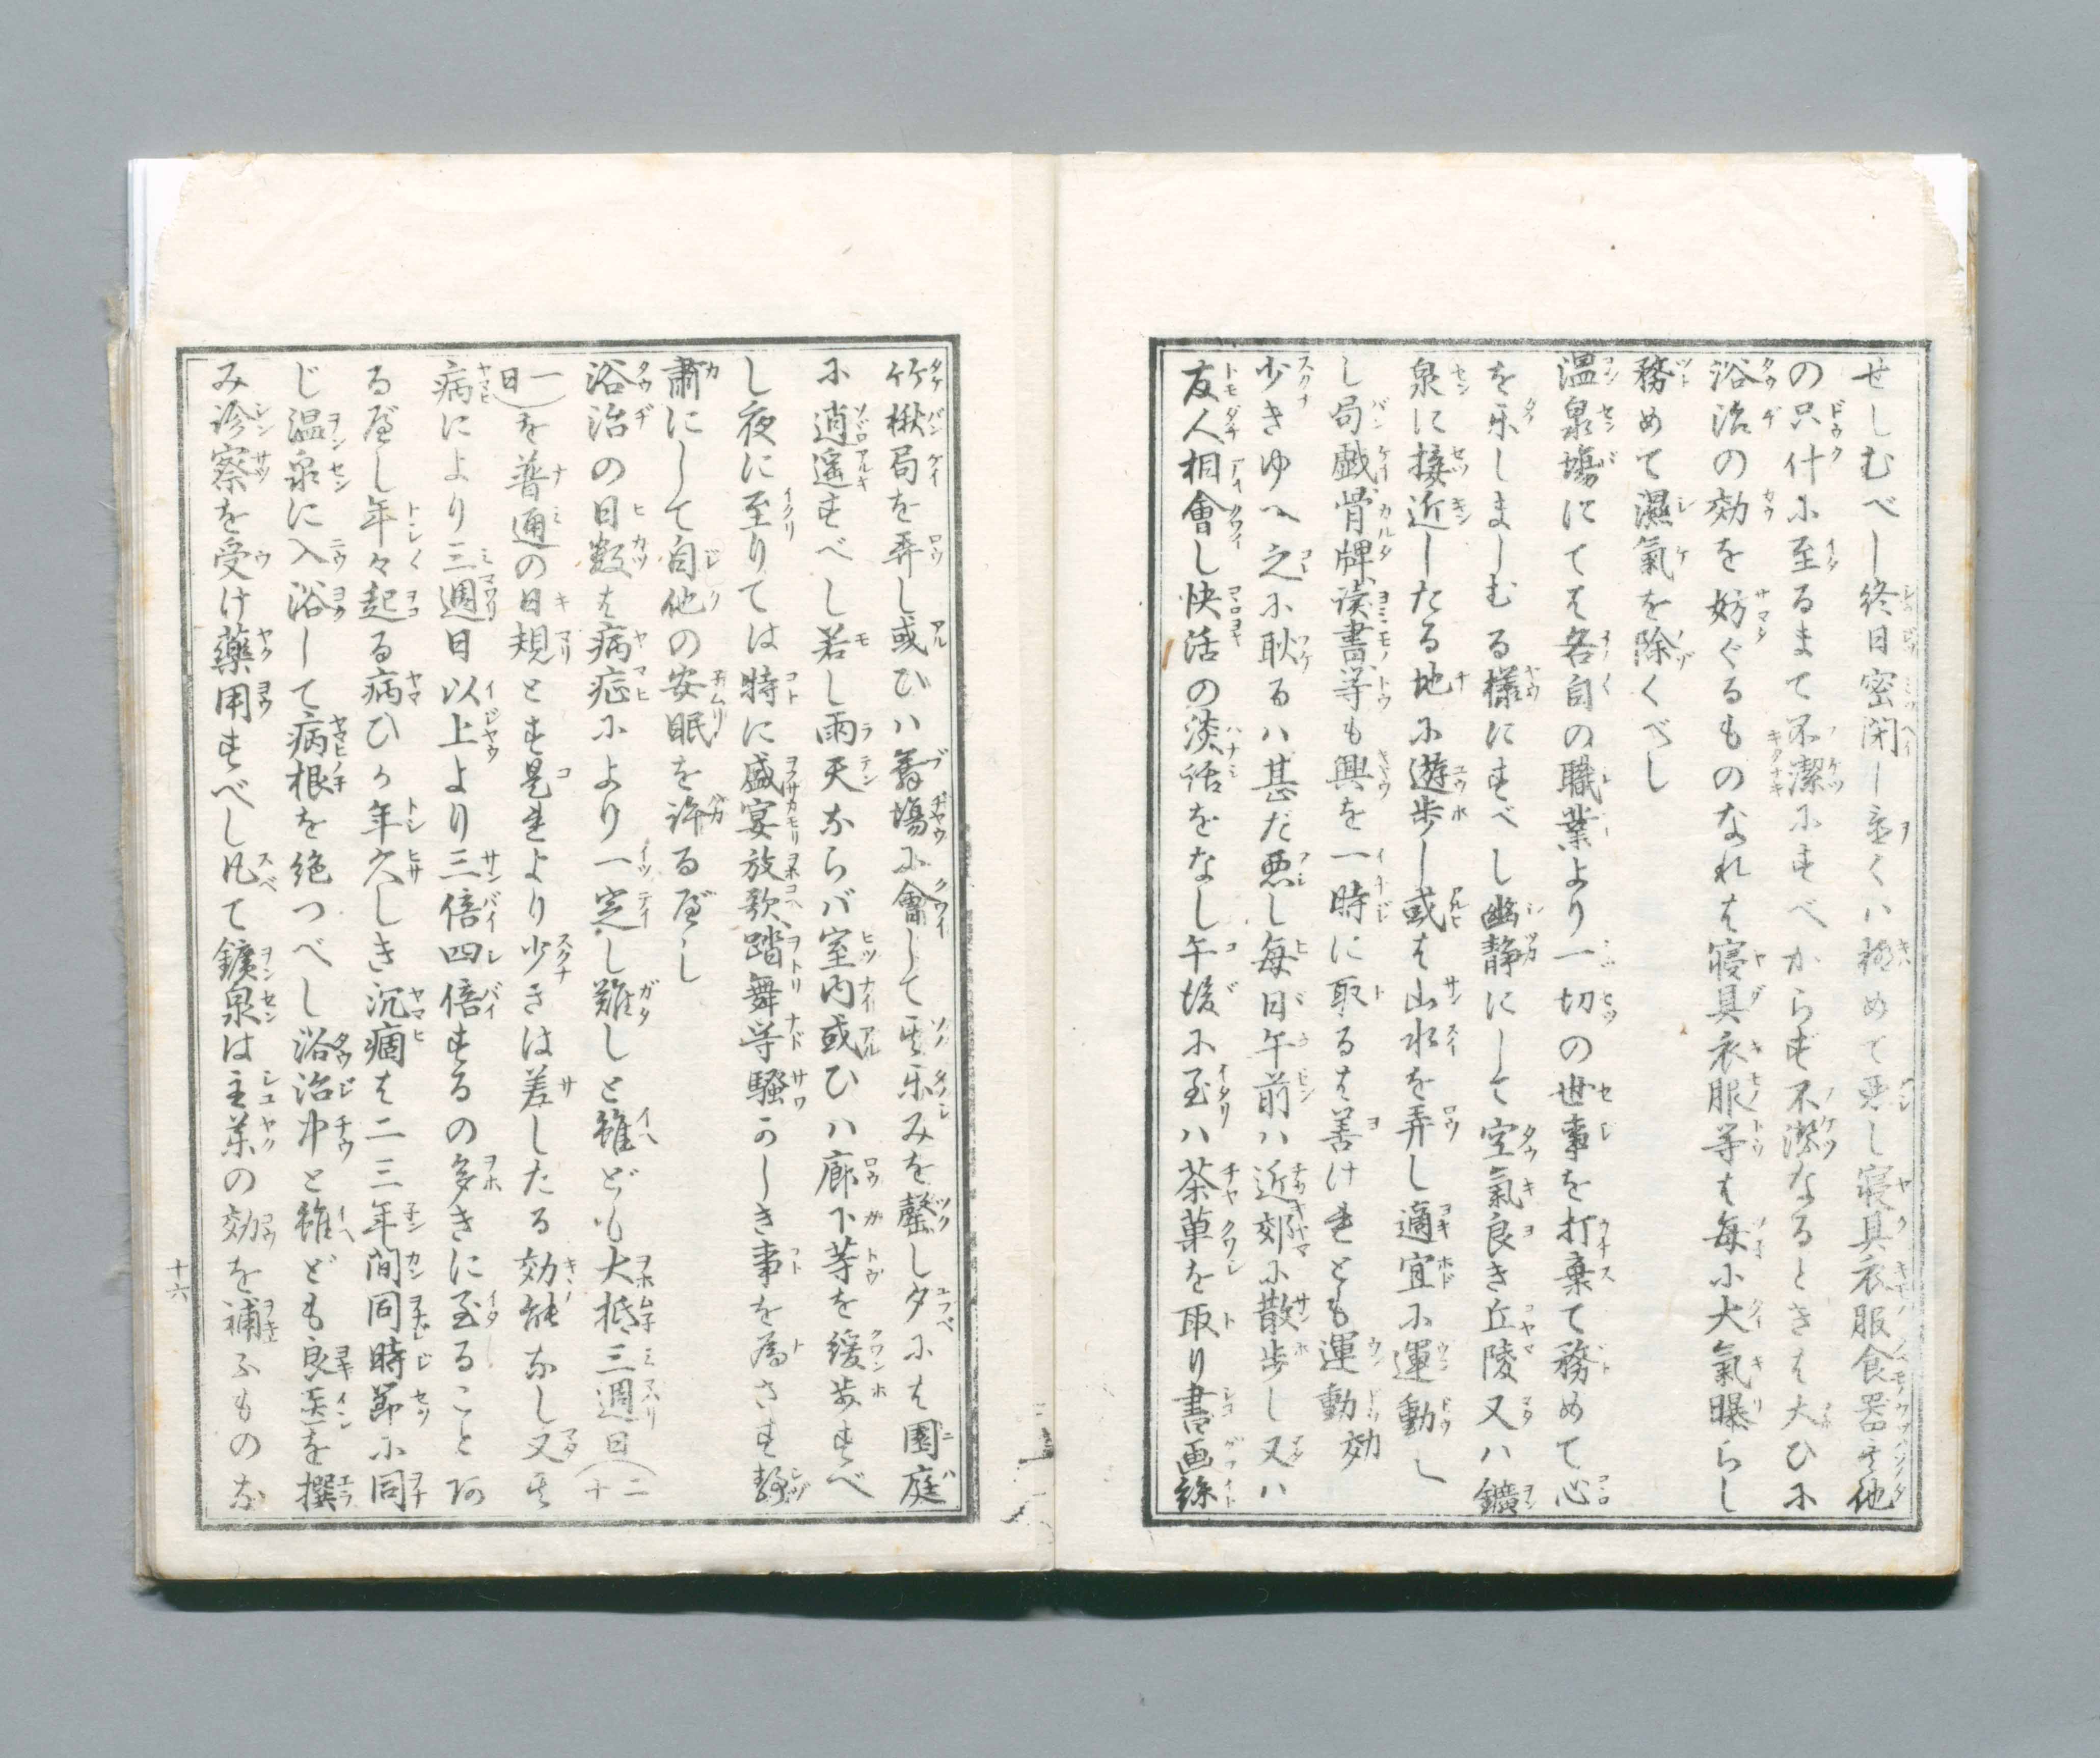 せしむべし終日密閉し置くハ極めて悪し寝具衣服食器其他
の只什に至るまて不潔にすべからず不潔なるときは大ひに
浴治の効を妨ぐるものなれは寝具衣服等は毎に大氣曝らし
務めて濕氣を除くべし
温泉塲にては各自の職業より一切の世事を打棄て務めて心
を楽しましむる様にすべし幽静にして空氣良き丘陵又ハ鑛
泉に接近したる地に遊歩し或は山水を弄し適宜に運動し
し局戯骨牌、讀書等も興を一時に取るは善けれとも運動効
少きゆへ之に耽るハ甚だ悪し毎日午前ハ近郊に散歩し又ハ
友人相會し快活の談話をなし午後に至ハ茶菓を取り書画絲
竹楸局を弄し或ひハ舞塲に會して其楽みを罄し夕には園庭
に逍遥すべし若し雨天ならバ室内或ひハ廊下等を緩歩すべ
し夜に至りては特に盛宴放歌、踏舞等騒かしき事を為さす静
肅にして自他の安眠を許るべし
浴治の日数は病症により一定し難しと雖ども大抵三週日(二十
一日)を普通の日規とす是れより少きは差したる効能なし又其
病により三週目以上より三倍四倍するの多きに至ること阿
るべし年々起る病ひか年久しき沉痼は二三年間同時節に同
じ温泉に入浴して病根を絶つべし浴治中と雖ども良医を撰
み診察を受け藥用すべし凡て鑛泉は主薬の効を補ふものな
十六